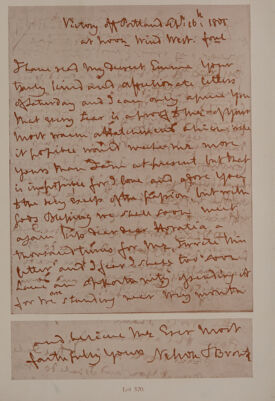 Victory off Portland Sepr. 16th. 1805
at noon Wind West. foul
I have read my dearest Emma your
truly kind and affectionate letters
of Saturday and I can only assure you
that every tear is a proof to me of your
most warm attachment which were
it possible would make me more
yours than I am at present. but that
is impossible for I love and adore you
to the very excess of the passion, but with
Gods Blessing we shall soon meet
again. Kiss dear dear Horatia a
thousand times for me, I write this
letter and I fear I shall too soon
have an opportunity of sending it
for we standing near Weymouth
and believe me Ever most
faithfully yours Nelson & Bronte
Lot 320.